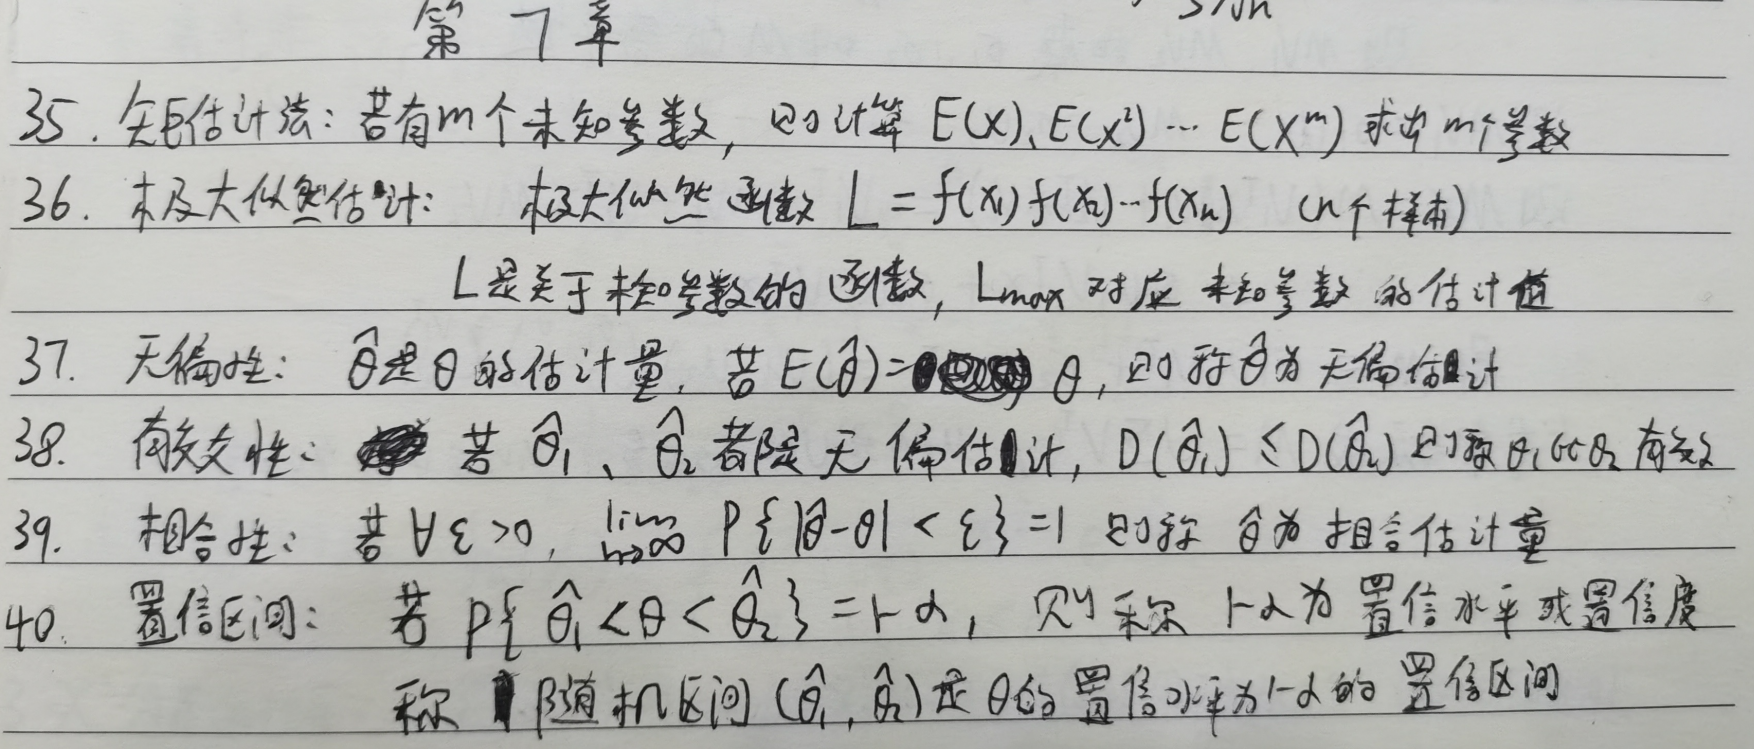 S/√n
第7章
35. 矩估计法：若有m个未知参数，则计算 E(X)、E(X²)…E(Xᵐ) 求出m个参数
36. 极大似然估计： 极大似然函数 L = f(x₁) f(x₂)…f(xₙ) (n个样本)
L是关于未知参数的函数，Lmax 对应 未知参数 的估计值
37. 无偏性： θ̂是θ的估计量，若 E(θ̂)= θ，则称θ̂为无偏估计
38. 有效性： 若 θ̂₁、θ̂₂都是无偏估计，D(θ̂₁) ≤ D(θ̂₂) 则称θ₁比θ₂有效
39. 相合性： 若 ∀ε>0， lim n→∞ P{|θ̂-θ| < ε} =1 则称 θ̂为相合估计量
40. 置信区间： 若 P{θ̂₁<θ<θ̂₂} = 1-α， 则称 1-α为置信水平或置信度
称 随机区间 (θ̂₁, θ̂₂) 是 θ的置信水平为1-α的 置信区间